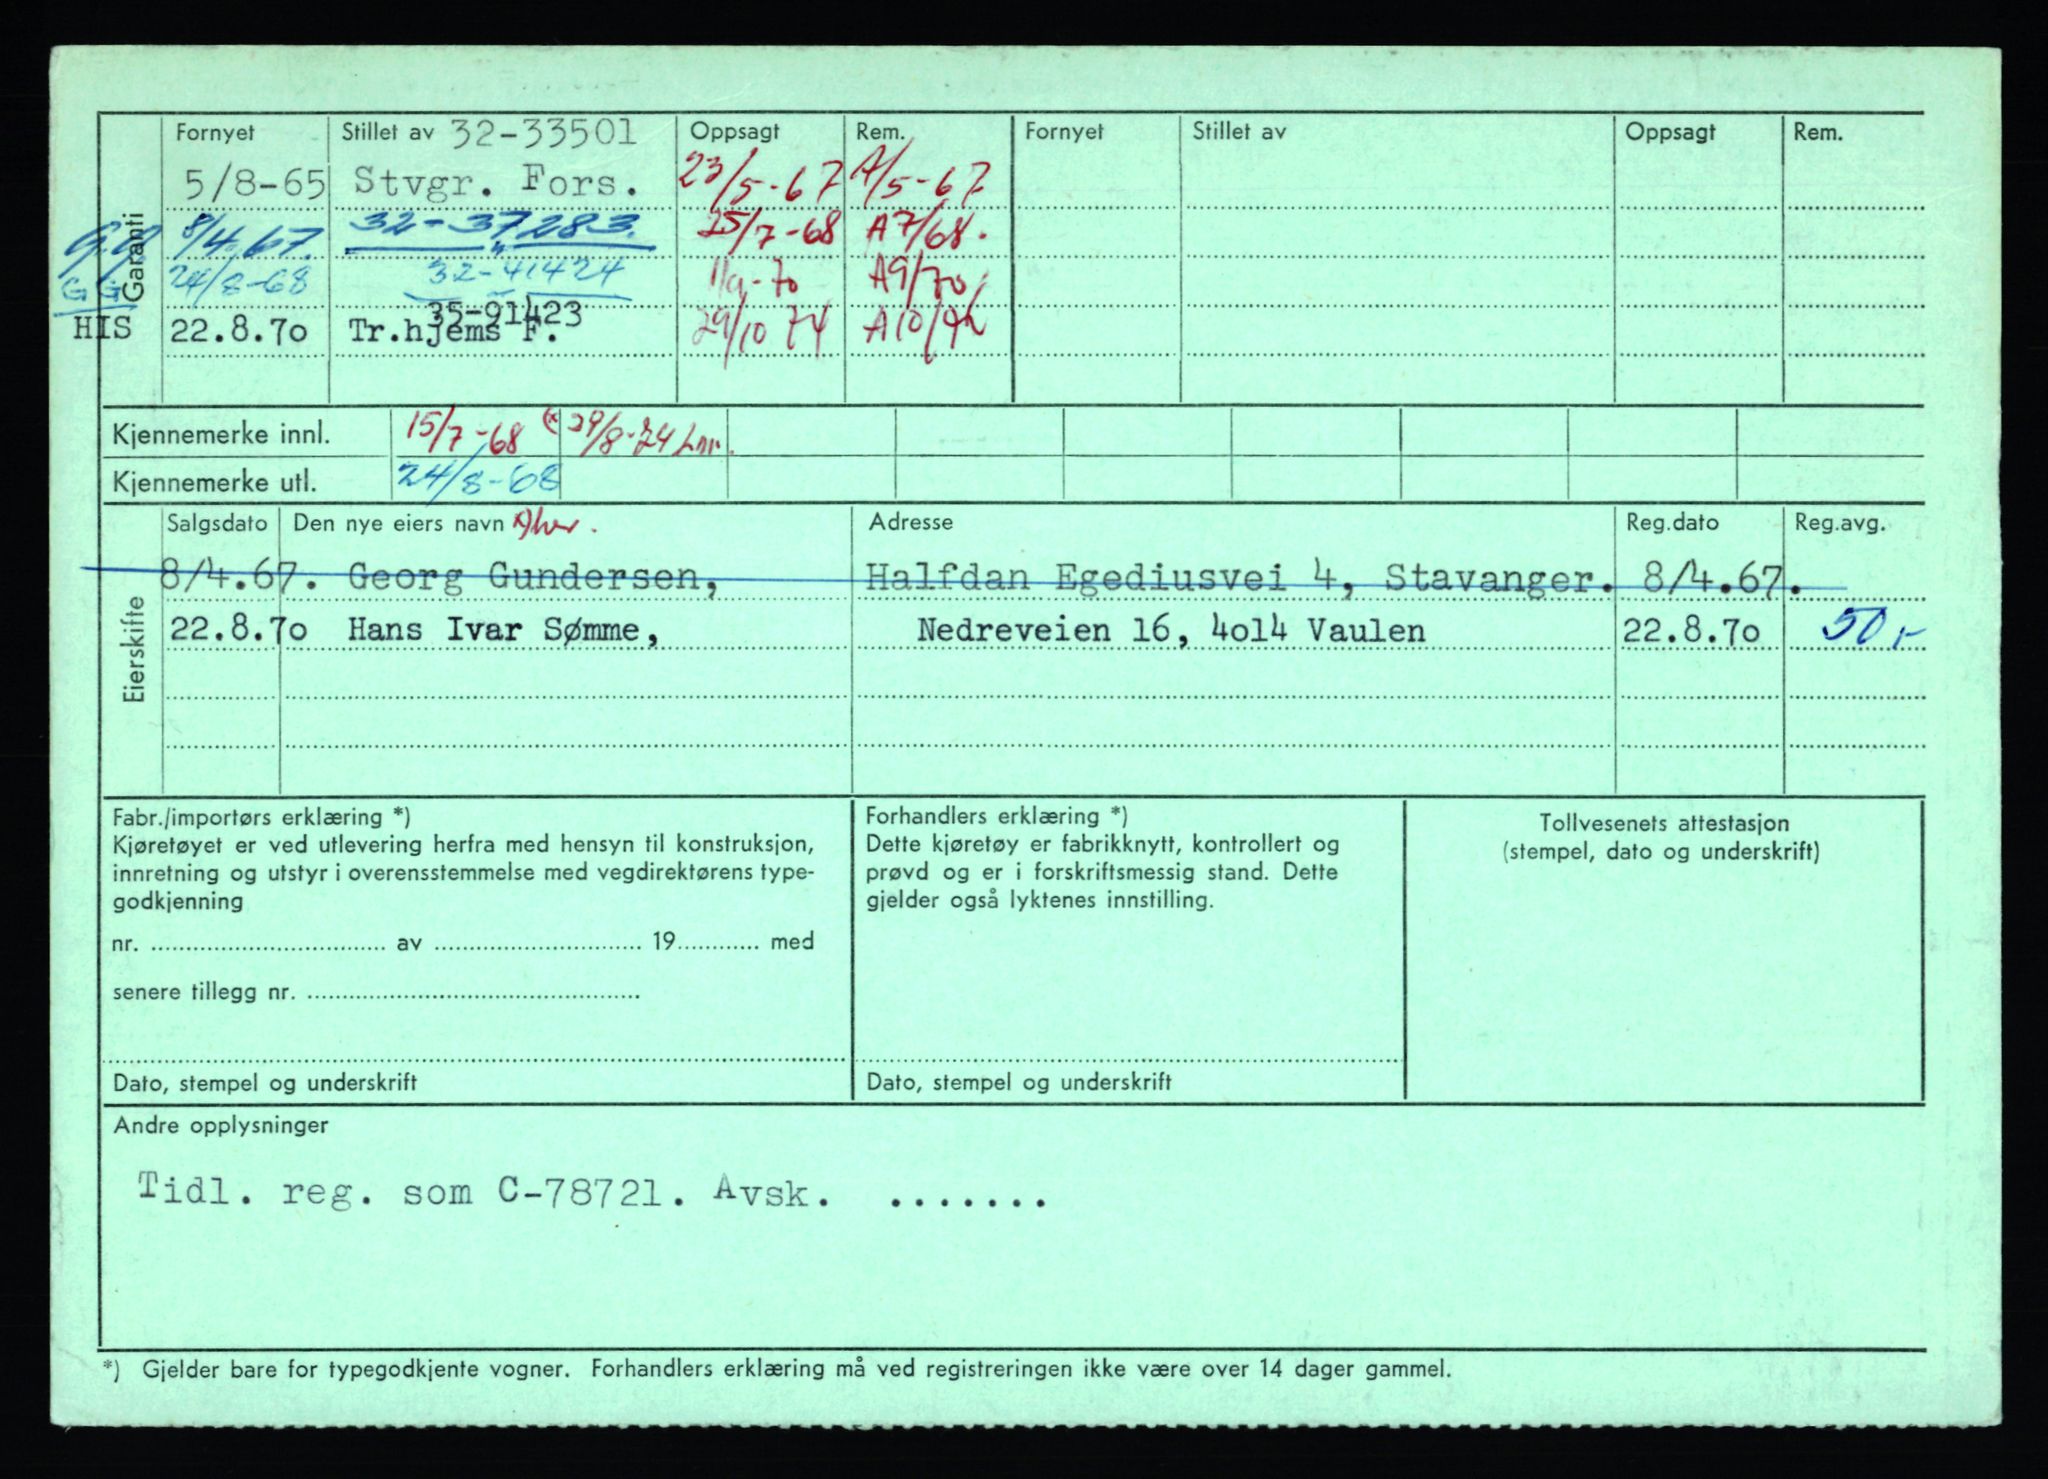 Fornyet Stillet av 32-33501 Oppsagt Rem. Fornyet Stillet av Oppsagt Rem.
Garanti
5/8-65 Stvgr. Fors. 23/5-67 A/5-67
G.G. 8/4.67. 32-37283. 25/7-68 A7/68.
GG 24/8-68 32-41424 11/9-70 A9/70
35-91423
HIS 22.8.7o Tr.hjems F. 29/10 74 A10/
Kjennemerke innl. 15/7-68 29/8-74
Kjennemerke utl. 24/8-68
Eierskifte
Salgsdato Den nye eiers navn Adresse Reg.dato Reg.avg.
8/4.67. Georg Gundersen, Halfdan Egediusvei 4, Stavanger. 8/4.67.
22.8.7o Hans Ivar Sømme, Nedreveien 16, 4o14 Vaulen 22.8.7o 50,-
Fabr./importørs erklæring *)
Kjøretøyet er ved utlevering herfra med hensyn til konstruksjon,
innretning og utstyr i overensstemmelse med vegdirektørens type-
godkjenning
nr. .................... av .................... 19............ med
senere tillegg nr. ....................
Dato, stempel og underskrift
Forhandlers erklæring *)
Dette kjøretøy er fabrikknytt, kontrollert og
prøvd og er i forskriftsmessig stand. Dette
gjelder også lyktenes innstilling.
Dato, stempel og underskrift
Tollvesenets attestasjon
(stempel, dato og underskrift)
Andre opplysninger
Tidl. reg. som C-78721. Avsk. .......
*) Gjelder bare for typegodkjente vogner. Forhandlers erklæring må ved registreringen ikke være over 14 dager gammel.